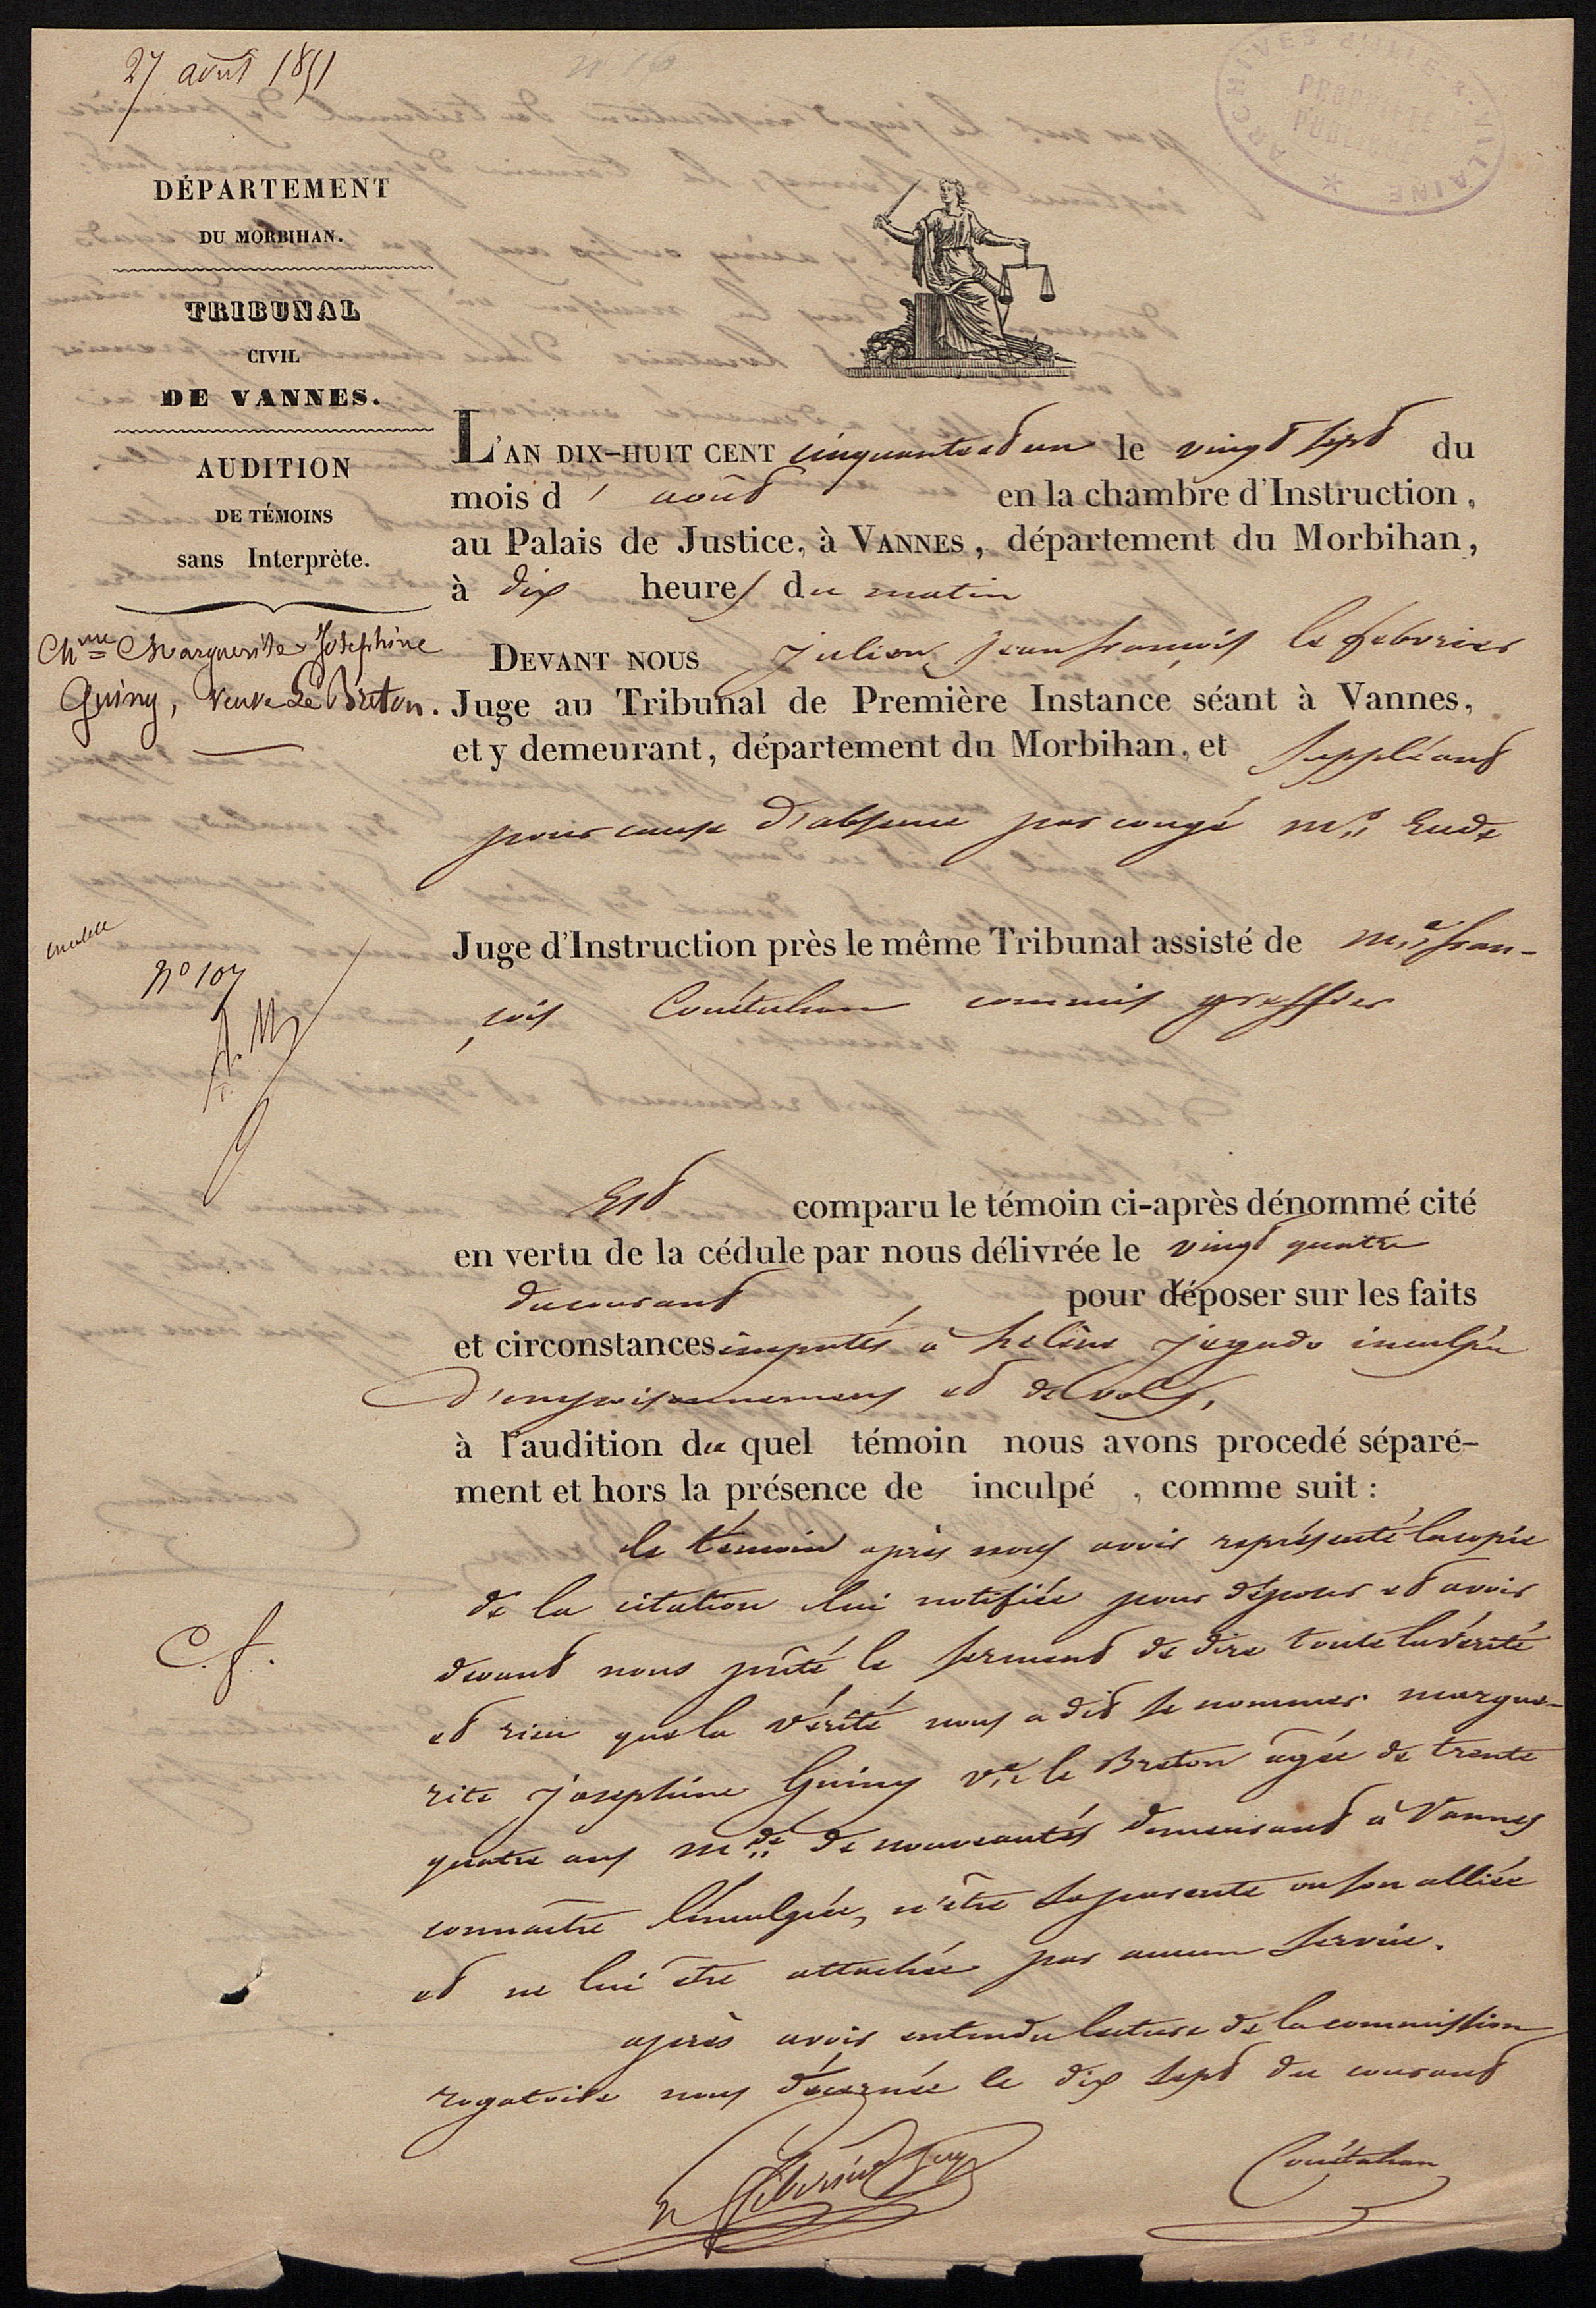 27 août 1851
ARCHIVES D'ILLE & VILAINE
PROPRIÉTÉ
PUBLIQUE
DÉPARTEMENT
DU MORBIHAN.
TRIBUNAL
CIVIL
DE VANNES.
AUDITION
DE TÉMOINS
sans Interprète.
Marguerite Joséphine
Guiny, veuve Le Breton.
N° 107
C. f.
L'AN DIX-HUIT CENT cinquante et un le vingt sept du
mois d' août en la chambre d'Instruction,
au Palais de Justice, à VANNES, département du Morbihan,
à dix heures du matin
DEVANT NOUS Julien Jean françois le febvrier
Juge au Tribunal de Première Instance séant à Vannes,
et y demeurant, département du Morbihan, et suppléant
pour cause d'absence par congé Mr Eude
Juge d'Instruction près le même Tribunal assisté de Me fran-
çois Couëtuhan commis greffier
Est comparu le témoin ci-après dénommé cité
en vertu de la cédule par nous délivrée le vingt quatre
du courant pour déposer sur les faits
et circonstances imputés à hélène jegado inculpée
d'empoisonnements et de vols,
à l'audition du quel témoin nous avons procedé séparé-
ment et hors la présence de inculpé , comme suit :
le témoin après nous avoir représenté la copie
de la citation lui notifiée pour déposer et avoir
devant nous prêté le serment de dire toute la vérité
et rien que la vérité nous a dit se nommer margue-
rite josephine Guiny ve le Breton âgée de trente
quatre ans mde de nouveautés demeurant à Vannes
connaître l'inculpée, n'être sa parente ou son alliée
et ne lui être attachée par aucun service.
après avoir entendu lecture de la commission
rogatoire nous décernée le dix sept du courant
Couëtuhan